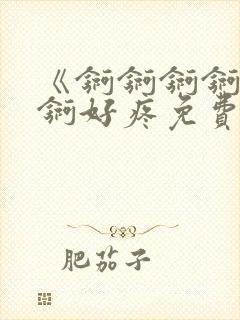 《锕锕锕锕
锕好疼免費
肥茄子